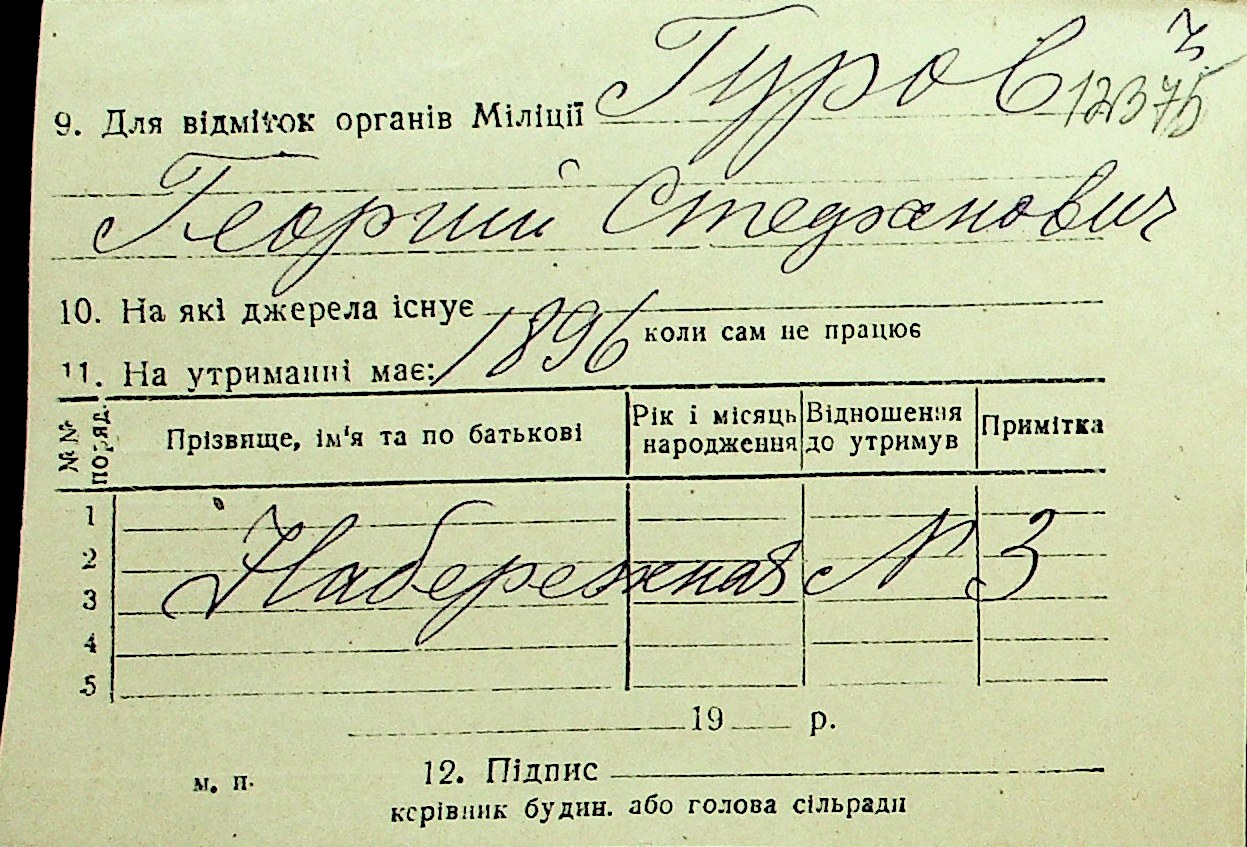 З
9. Для відміток органів Міліції Гуров 12375
Георгий Стефанович
10. На які джерела існує
1896 коли сам не працює
11. На утриманні має:
№№ поряд. Прізвище, ім'я та по батькові Рік і місяць народження Відношення до утримув Примітка
1
2 Набережная N 3
3
4
5
19 р.
м. п. 12. Підпис
керівник будин. або голова сільради